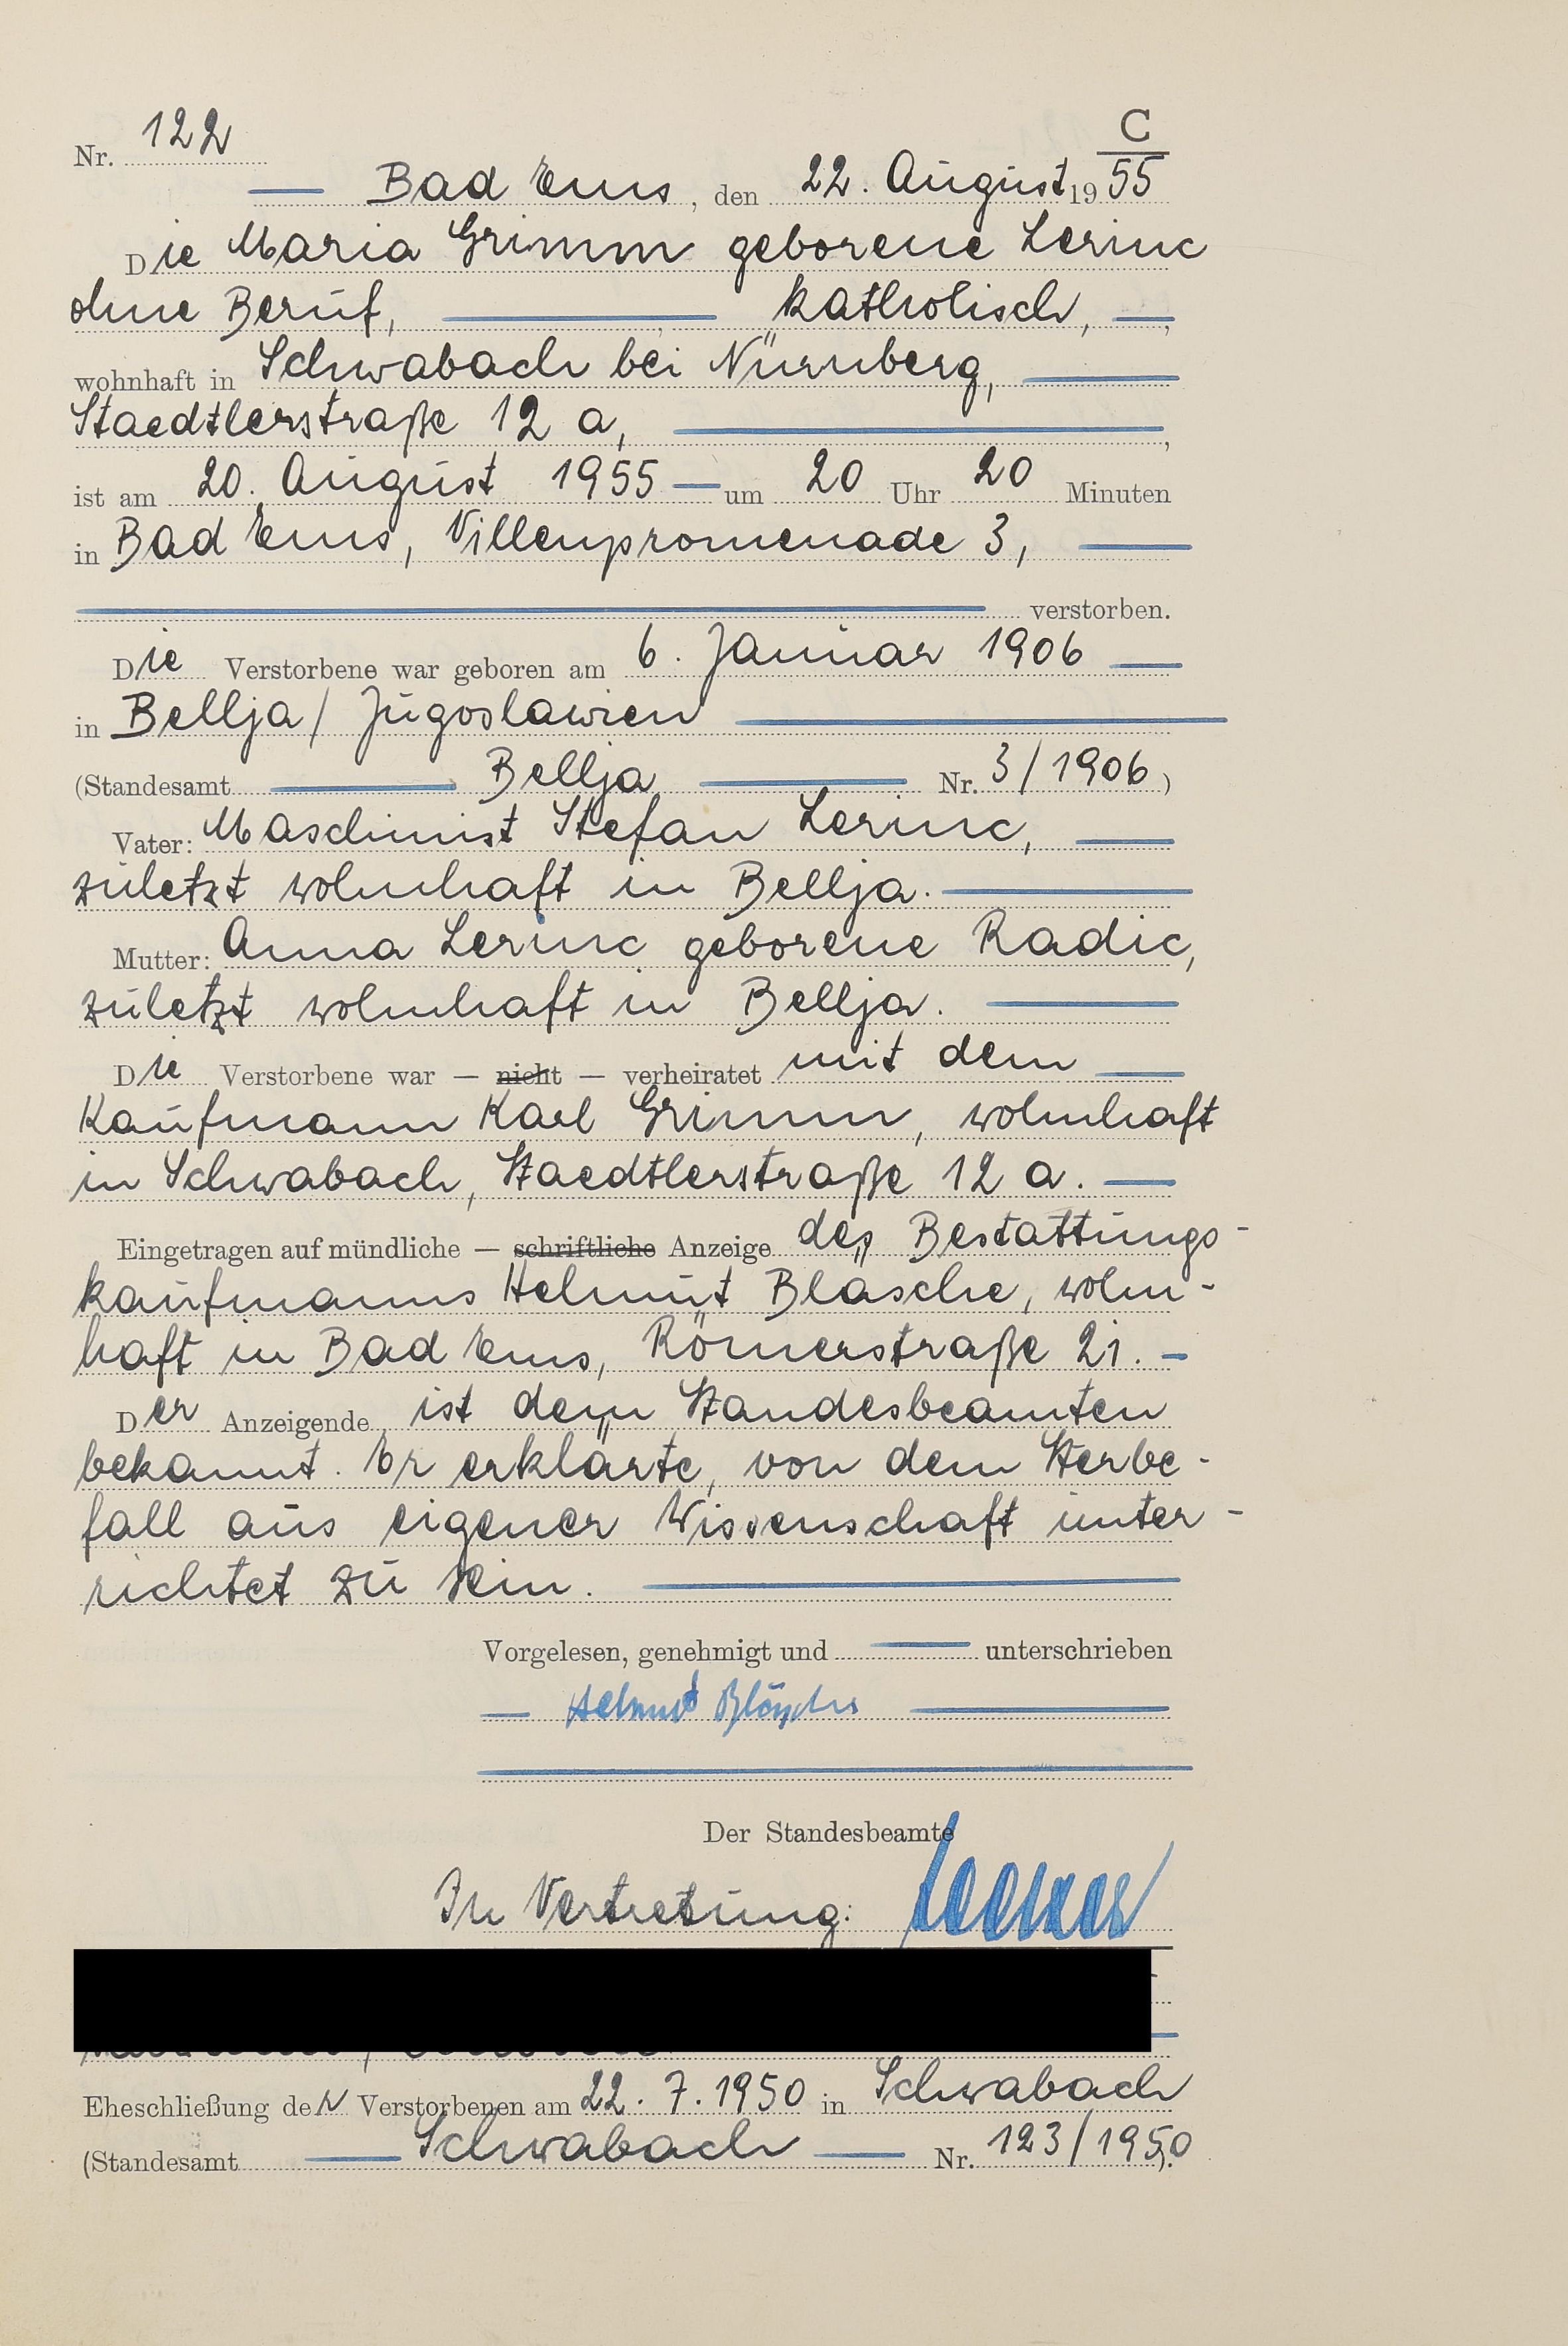 C
Nr. 122
Bad Ems, den 22. August 1955
Die Maria Grimm geborene Lerinc
ohne Beruf, katholisch,
wohnhaft in Schwabach bei Nürnberg,
Staedtlerstraße 12 a,
ist am 20. August 1955 um 20 Uhr 20 Minuten
in Bad Ems, Villenpromenade 3,
verstorben.
Die Verstorbene war geboren am 6. Januar 1906
in Bellja / Jugoslawien
(Standesamt Bellja Nr. 3/1906)
Vater: Maschinist Stefan Lerinc,
zuletzt wohnhaft in Bellja.
Mutter: Anna Lerinc geborene Radic,
zuletzt wohnhaft in Bellja.
Die Verstorbene war — nicht — verheiratet mit dem
Kaufmann Karl Grimm, wohnhaft
in Schwabach, Staedtlerstraße 12 a.
Eingetragen auf mündliche — schriftliche Anzeige des Bestattungs-
kaufmanns Helmut Bläsche, wohn-
haft in Bad Ems, Römerstraße 21.
Der Anzeigende ist dem Standesbeamten
bekannt. Er erklärte, von dem Sterbe-
fall aus eigener Wissenschaft unter-
richtet zu sein.
Vorgelesen, genehmigt und unterschrieben
Helmut Bläsche
Der Standesbeamte
In Vertretung:
Eheschließung der Verstorbenen am 22. 7. 1950 in Schwabach
(Standesamt Schwabach Nr. 123/1950).